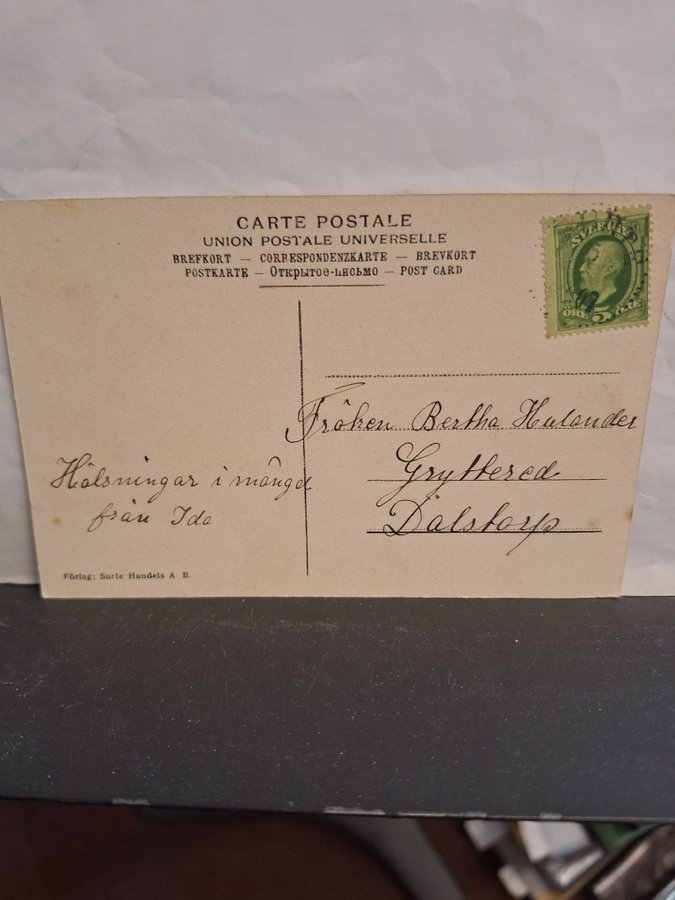 CARTE POSTALE
UNION POSTALE UNIVERSELLE
BREFKORT — CORRESPONDENZKARTE — BREVKORT
POSTKARTE — Открытое-письмо — POST CARD
SVERIGE
5
ÖRE 5 ÖRE
07
Fröken Bertha Hulander
Gryttered
Dalstorp
Hälsningar i mängd
från Ida
Förlag: Surte Handels A B.